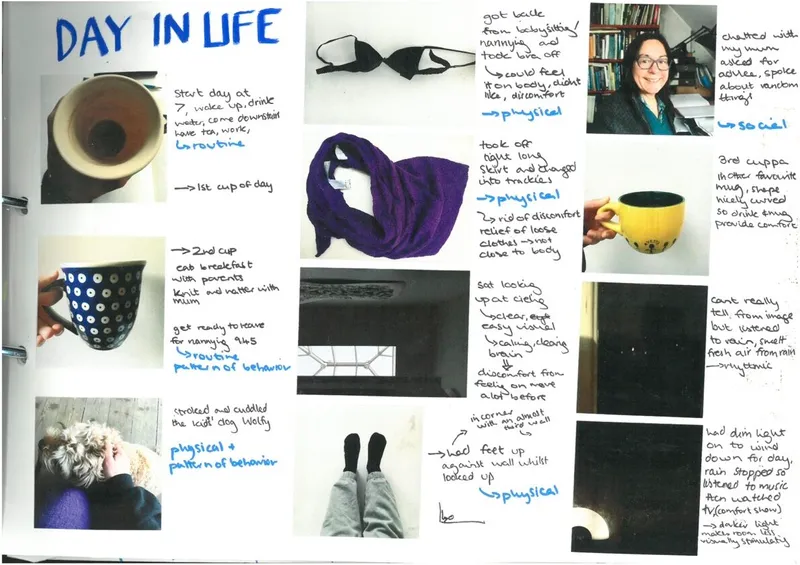 DAY IN LIFE
Start day at
7, wake up, drink
water, come downstairs
have tea, work,
↳ routine
→ 1st cup of day
→ 2nd cup
eat breakfast
with parents
knit and natter with
mum
get ready to leave
for nannying 945
↳ routine
pattern of behavior
stroked and cuddled
the kids' dog Wolfy
physical +
pattern of behavior
got back
from babysitting/
nannying and
took bra off
↳ could feel
it on body, didnt
like, discomfort
→ physical
took off
tight long
skirt and changed
into trackies
→ physical
↳ rid of discomfort
relief of loose
clothes → not
close to body
sat looking
up at cieling
↳ clear,
easy visual
↳ calming, clearing
brain
⇓
discomfort from
feeling on move
a lot before
in corner
with an almost
third wall
→ had feet up
against wall whilst
looked up
↳ physical
chatted with
my mum
asked for
advice, spoke
about random
things
↳ social
3rd cuppa
in other favourite
mug, shape
nicely curved
so drink & mug
provide comfort
cant really
tell from image
but listened
to rain, smelt
fresh air from rain
→ rhythmic
had dim light
on to wind
down for day,
rain stopped so
listened to music
then watched
tv (comfort show)
→ darker light
makes room less
visually stimulating